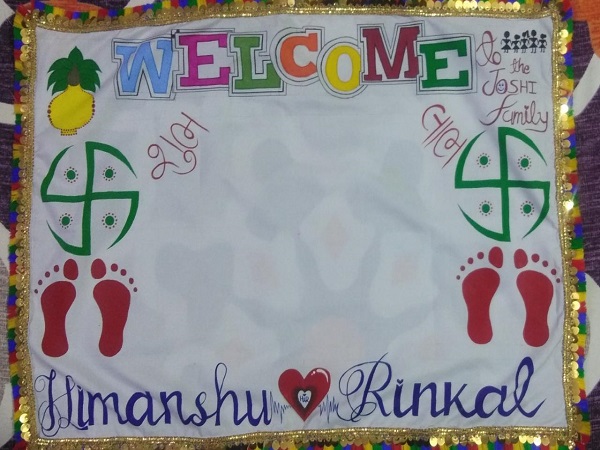 WELCOME
to
the
JOSHI
Family
શુભ
લાભ
Himanshu Rinkal